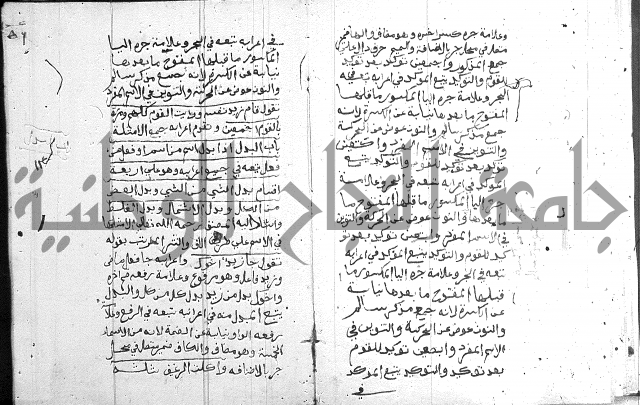 وعلامة جره كسر اخره وهو مضاف والها في
متعلق في محل جر بالاضافة والميم حرف دال علي
جمع المذكور واجمعين توكيد بعد توكيد
للقوم والتوكيد يتبع الموكد في اعرابه تبعه في
الجر وعلامة جره اليا المكسور ما قبلها
المفتوح ما بعدها نيابة عن الكسرة لانه
جمع مذكر سالم والنون عوض عن الحركة
والتنوين في الاسم المفرد واكتعين
توكيد بعد توكيد للقوم والتوكيد يتبع
الموكد في اعرابه تبعه في الجر وعلامة
جره اليا المكسور ما قبلها المفتوح ما
بعدها والنون عوض عن الحركة والتنوين
في الاسم المفرد وابتعين توكيد بعد تو
كيد للقوم والتوكيد يتبع الموكد في اعرابه
تبعه في الجر وعلامة جره اليا المكسور ما
قبلها المفتوح ما بعدها نيابة
عن الكسرة لانه جمع مذكر سالم
والنون عوض عن الحركة والتنوين في
الاسم المفرد وابصعين توكيد للقوم
بعد توكيد والتوكيد يتبع الموكد
في
في اعرابه تبعه في الجر وعلامة جره اليا
المكسور ما قبلها المفتوح ما بعدها
نيابة عن الكسرة لانه جمع مذكر سالم
والنون عوض عن الحركة والتنوين في الاسم المفرد
نقول قام زيد نفسه ورايت القوم كلهم ومررت
بالقوم اجمعين وتقدم اعرابه جميع الامثلة
باب البدل اذا بدل اسم من اسم او فعل من
فعل تبعه في جميع اعرابه وهو علي اربعة
اقسام بدل الشي من الشي وبدل البعض
من الكل وبدل الاشتمال وبدل الغلط
المصنف رحمه الله تعالي
في الاسم علي بقوله
نقول جا زيد اخوك واعرابه جا فعل ماض
وزيد فاعل وهو مرفوع وعلامة رفعه ضم اخره
واخوك بدل من زيد بدل كل من كل والبدل
يتبع المبدل منه في اعرابه تبعه في الرفع وعلامة
رفعه الواو نيابة عن الضمة لانه من الاسما
الخمسة وهو مضاف والكاف ضمير متصل في محل
جر بالاضافة واكلت الرغيف ثلثه
جامعة النجاح الوطنية